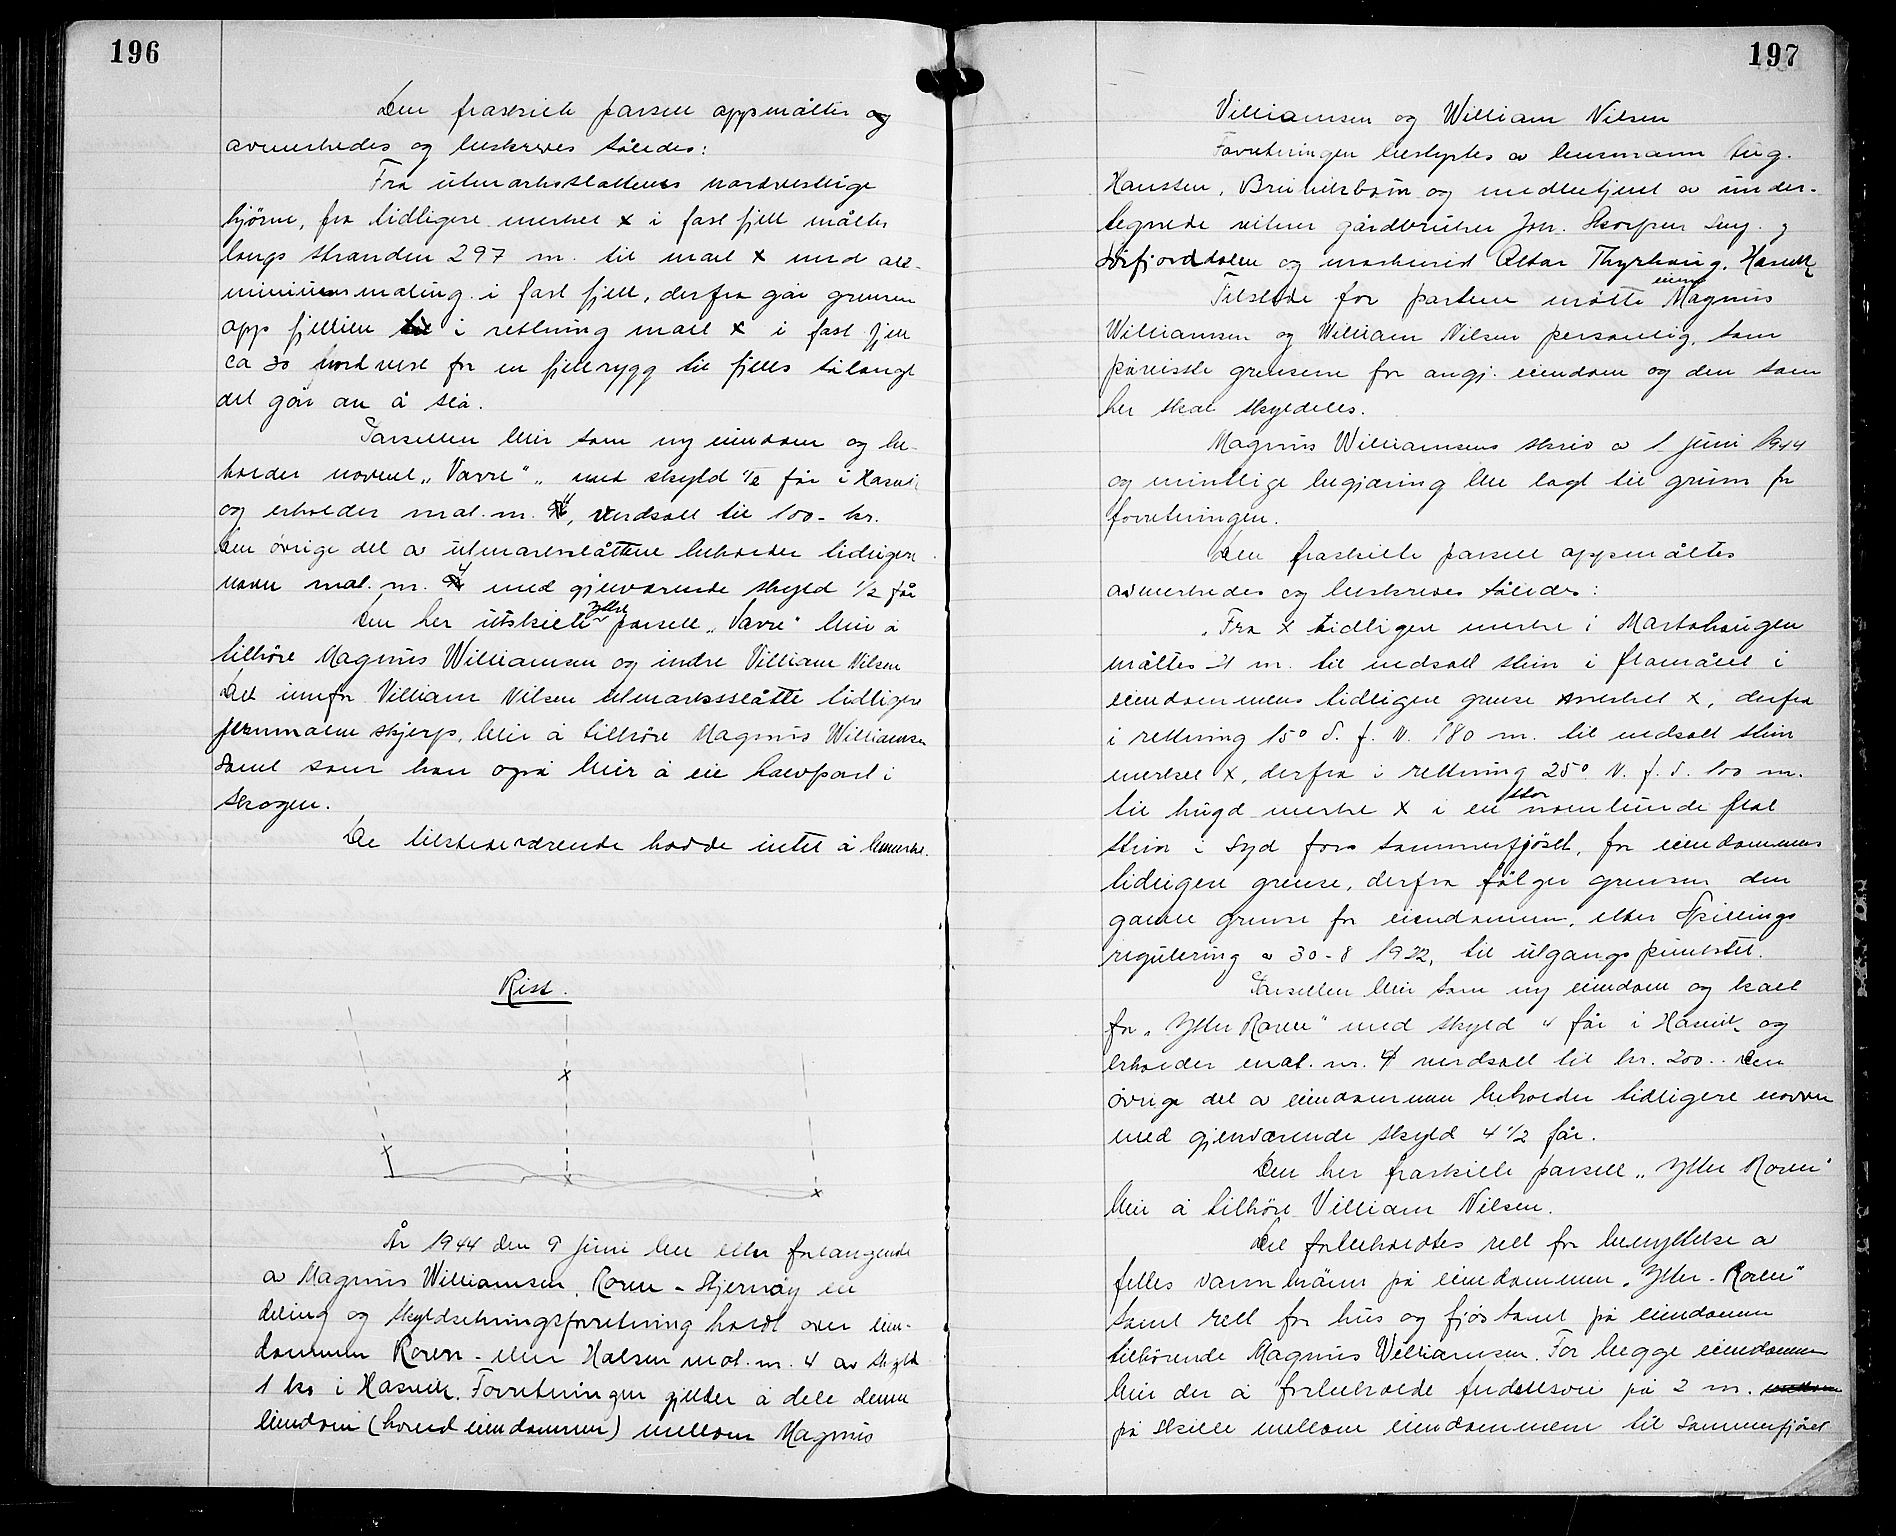 196
Den fraskilte parsell oppmåltes og
avmerkedes og beskrives således:
Fra utmarksslåttens nordvestlige
hjørne, fra tidligere merket x i fast fjell måltes
langs stranden 297 m. til malt x med alu-
miniumsmaling i fast fjell, derfra går grensen
opp fjellien i retning malt x i fast fjell
ca 30 nordvest for en fjellrygg til fjells så langt
det går an å slå.
Parsellen blir som ny eiendom og be-
holder navnet „Vavre" med skyld 1/2 får i Hasvik
og erholder mat. nr. verdsatt til 100- kr.
Den øvrige del av utmarksslåttene beholder tidligere
navn mat. nr. 4 med gjenværende skyld 1/2 får
Den her utskilte ytre parsell „Vavre" blir å
tilhøre Magnus Williamsen og indre Villiam Nilsen
Det innfor Villiam Nilsen utmarksslåtte tidligere
skjerp, blir å tilhøre Magnus Williamsen
samt som han også blir å eie halvpart i
skogen.
De tilstedeværende hadde intet å bemerke.
Riss.
x
x
x
x
År 1944 den 9 juni ble etter forlangende
av Magnus Williamsen, Roren - Stjernøy en
deling og skyldsetningsforretning holdt over eien-
dommen Roren - eller Halsen mat. nr. 4 av skyld
1 ko i Hasvik. Forretningen gjelder å dele denne
eiendom (hovedeiendommen) mellom Magnus
197
Villiamsen og William Nilsen
Forretningen bestyrtes av lensmann Aug.
Hansten, Breivikbotn og medbetjent av under-
tegnede vitner gårdbruker Joh.
Sørfjorddalen og maskinist Thyrhaug, Hasvik
Tilstede for partene møtte eiere Magnus
Williamsen og William Nilsen personlig, som
påvisste grensene for angj. eiendom og den som
her skal skyldeles.
Magnus Williamsens skriv av 1 juni 1944
og muntlige begjæring ble lagt til grunn for
forretningen.
Den fraskilte parsell oppmåltes
avmerkedes og beskrives således:
Fra x tidligere merke i Martahaugen
måltes 21 m. til nedsatt stein i flomålet i
eiendommens tidligere grense merket x, derfra
i retning 15° S. f. V. 180 m. til nedsatt stein
merket x, derfra i retning 25° V. f. S. 100 m.
til hugd merke x i en stor flat
stein i syd for sommerfjøset, for eiendommens
tidligere grense, derfra følger grensen den
gamle grense for eiendommen, etter Skillings
regulering av 30-8 1922, til utgangspunktet.
Parsellen blir som ny eiendom og kalt
for „Ytter Roren" med skyld 4 får i Hasvik og
erholder mat. nr. 4 verdsatt til kr. 200.- Den
øvrige del av eiendommen beholder tidligere navn
med gjenværende skyld 4 1/2 får.
Den her fraskilte parsell „Ytter Roren"
blir å tilhøre Villiam Nilsen.
Det forbeholdtes rett for benyttelse av
felles vannbrønn på eiendommen „Ytter-Roren"
samt rett for hus og fjøstomt på eiendommen
tilhørende Magnus Villiamsen. For begge eiendommer
blir der å forbeholde ferdselsvei på 2 m.
på skille mellom eiendommene til sommerfjøset